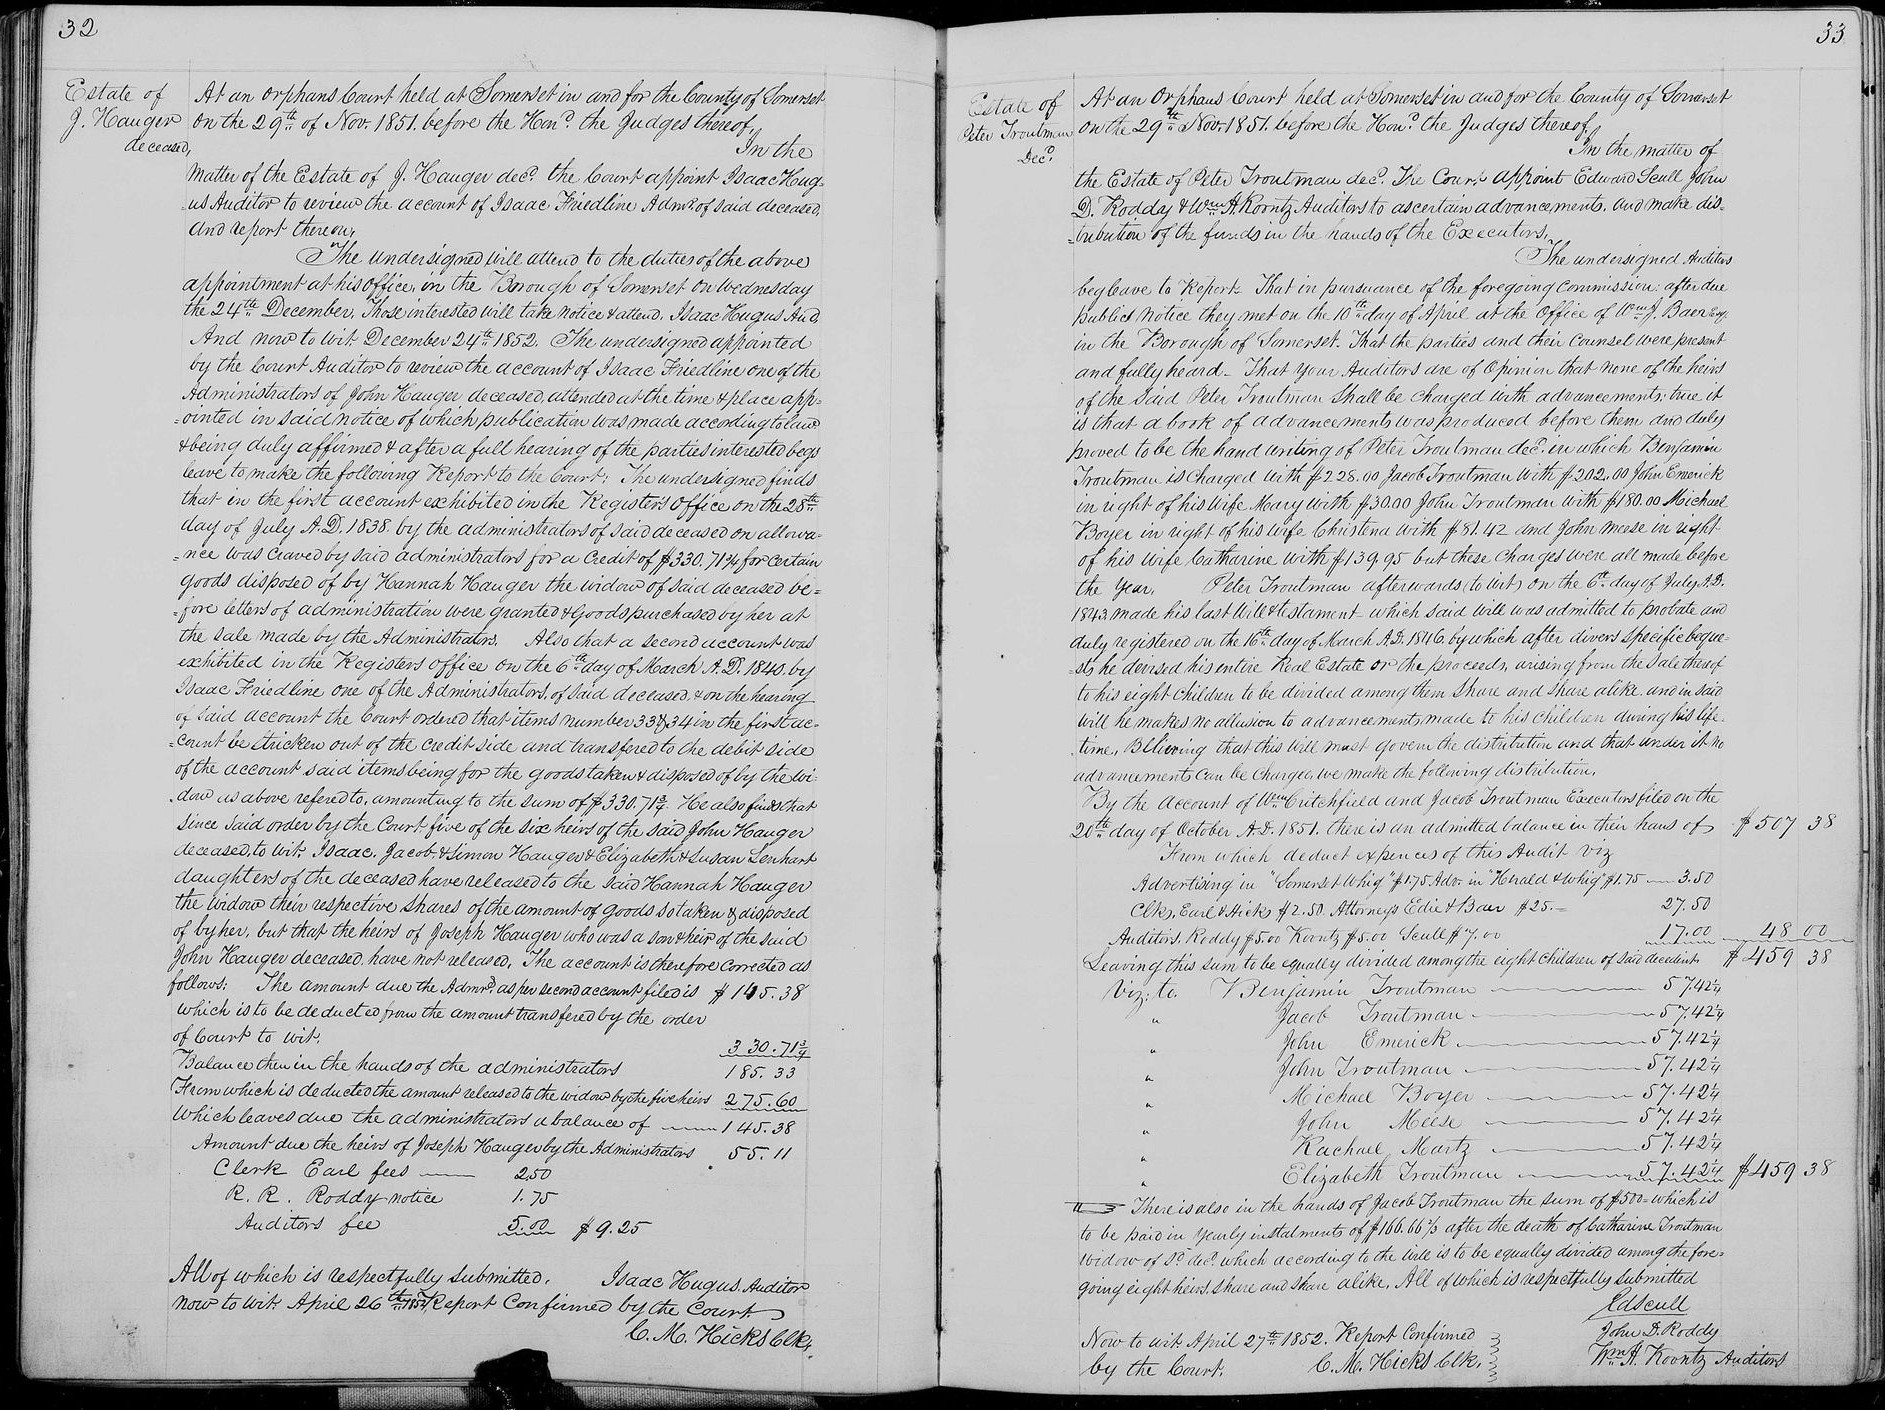 32
Estate of
J. Hauger
deceased,
At an Orphans Court held at Somerset in and for the County of Somerset
on the 29th of Nov. 1851. before the Hond. the Judges thereof,
In the
Matter of the Estate of J. Hauger decd. the Court appoint Isaac Hug-
-us Auditor to review the account of Isaac Friedline Admr of said deceased,
and report thereon,
The undersigned will attend to the duties of the above
appointment at his office, in the Borough of Somerset on Wednesday
the 24th December, Those interested will take notice & attend. Isaac Hugus Aud,
And now to wit December 24th 1852. The undersigned appointed
by the Court Auditor to review the account of Isaac Friedline one of the
Administrators of John Hauger deceased, attended at the time & place app-
-ointed in said notice of which publication was made according to law
& being duly affirmed & after a full hearing of the parties interested begs
leave to make the following Report to the Court; The undersigned finds
that in the first account exhibited in the Register's Office on the 28th
day of July A.D. 1838. by the administrators of said deceased on allowa-
-nce was craved by said administrators for a Credit of $330.71¾ for certain
goods disposed of by Hannah Hauger the widow of said deceased be-
-fore letters of administration were granted & goods purchased by her at
the sale made by the Administrators. Also that a second account was
exhibited in the Registers office on the 6th day of March A.D. 1840. by
Isaac Friedline one of the Administrators, of said deceased, & on the hearing
of said account the Court ordered that items number 33 & 34 in the first ac-
-count be stricken out of the credit side and transfered to the debit side
of the account said items being for the goods taken & disposed of by the wi-
-dow as above refered to, amounting to the sum of $330.71¾. He also finds that
since said order by the Court five of the six heirs of the said John Hauger
deceased, to wit. Isaac, Jacob, & Simon Hauger & Elizabeth & Susan Lenhart
daughters of the deceased have released to the said Hannah Hauger
the widow their respective shares of the amount of goods so taken & disposed
of by her, but that the heirs of Joseph Hauger who was a son & heir of the said
John Hauger deceased have not released, The account is therefore corrected as
follows: The amount due the Admrs. as per second account filed is $145.38
which is to be deducted from the amount transfered by the order
of Court to wit. 330.71¾
Balance then in the hands of the administrators 185.33
From which is deducted the amount released to the widow by the five heirs 275.60
Which leaves due the administrators a balance of 145.38
Amount due the heirs of Joseph Hauger by the Administrators 55.11
Clerk Earl fees 2.50
R. R. Roddy notice 1.75
Auditors fee 5.00 $9.25
All of which is respectfully submitted. Isaac Hugus Auditor
Now to wit April 26th 1852 Report Confirmed by the Court
C. M. Hicks Clk.
33
Estate of
Peter Troutman
Decd.
At an Orphans Court held at Somerset in and for the County of Somerset
on the 29th Nov. 1851. before the Hond. the Judges thereof
In the matter of
the Estate of Peter Troutman decd. The Court appoint Edward Scull John
D. Roddy & Wm. H. Koontz Auditors to ascertain advancements, and make dis-
-tribution of the funds in the hands of the Executors,
The undersigned Auditors
beg leave to Report- That in pursuance of the foregoing commission: after due
public notice they met on the 10th day of April at the Office of Wm J. Baer Esq.
in the Borough of Somerset. That the parties and their counsel were present
and fully heard- That your Auditors are of Opinion that none of the heirs
of the said Peter Troutman shall be charged with advancements; true it
is that a book of advancements was produced before them and duly
proved to be the hand writing of Peter Troutman decd. in which Benjamin
Troutman is charged with $228.00 Jacob Troutman with $202.00 John Emerick
in right of his wife Mary with $30.00 John Troutman with $180.00 Michael
Boyer in right of his wife Christena with $81.42 and John Meese in right
of his wife Catharine with $139.95 but these charges were all made before
the Year. Peter Troutman afterwards (to wit) on the 6th day of July A.D.
1843 made his last Will & testament which said will was admitted to probate and
duly registered on the 16th day of March A.D. 1846. by which after divers specific beque-
-sts he devised his entire Real Estate or the proceeds, arising from the sale thereof
to his eight children to be divided among them share and share alike. and in said
will he makes no allusion to advancements made to his children during his life-
-time, Blieving that this will must govern the distribution and that under it no
advancements can be charged, we make the following distribution,
By the account of Wm Critchfield and Jacob Troutman Executors filed on the
20th day of October A.D. 1851. there is an admitted balance in their hans of $507 38
From which deduct expences of this Audit viz
Advertising in "Somerset Whig" $1.75 Adv. in "Herald & Whig" $1.75 3.50
Clks, Earl & Hicks $2.50 Attorneys Edie & Baer $25.= 27.50
Auditors. Roddy $5.00 Koontz $5.00 Scull $7.00 17.00 48 00
Leaving this sum to be equally divided among the eight children of said decedent $459 38
Viz; to. Benjamin Troutman 57.42¼
" Jacob Troutman 57.42¼
" John Emerick 57.42¼
" John Troutman 57.42¼
" Michael Boyer 57.42¼
" John Meese 57.42¼
" Rachael Martz 57.42¼
" Elizabeth Troutman 57.42¼ $459 38
There is also in the hands of Jacob Troutman the sum of $500= which is
to be paid in yearly instalments of $166.66⅔ after the death of Catharine Troutman
widow of sd. decd. which according to the will is to be equally divided among the fore-
going eight heirs, share and share alike, All of which is respectfully submitted
Ed Scull
John D. Roddy
Wm H. Koontz Auditors
Now to wit April 27th 1852. Report Confirmed
by the Court. C. M. Hicks Clk.